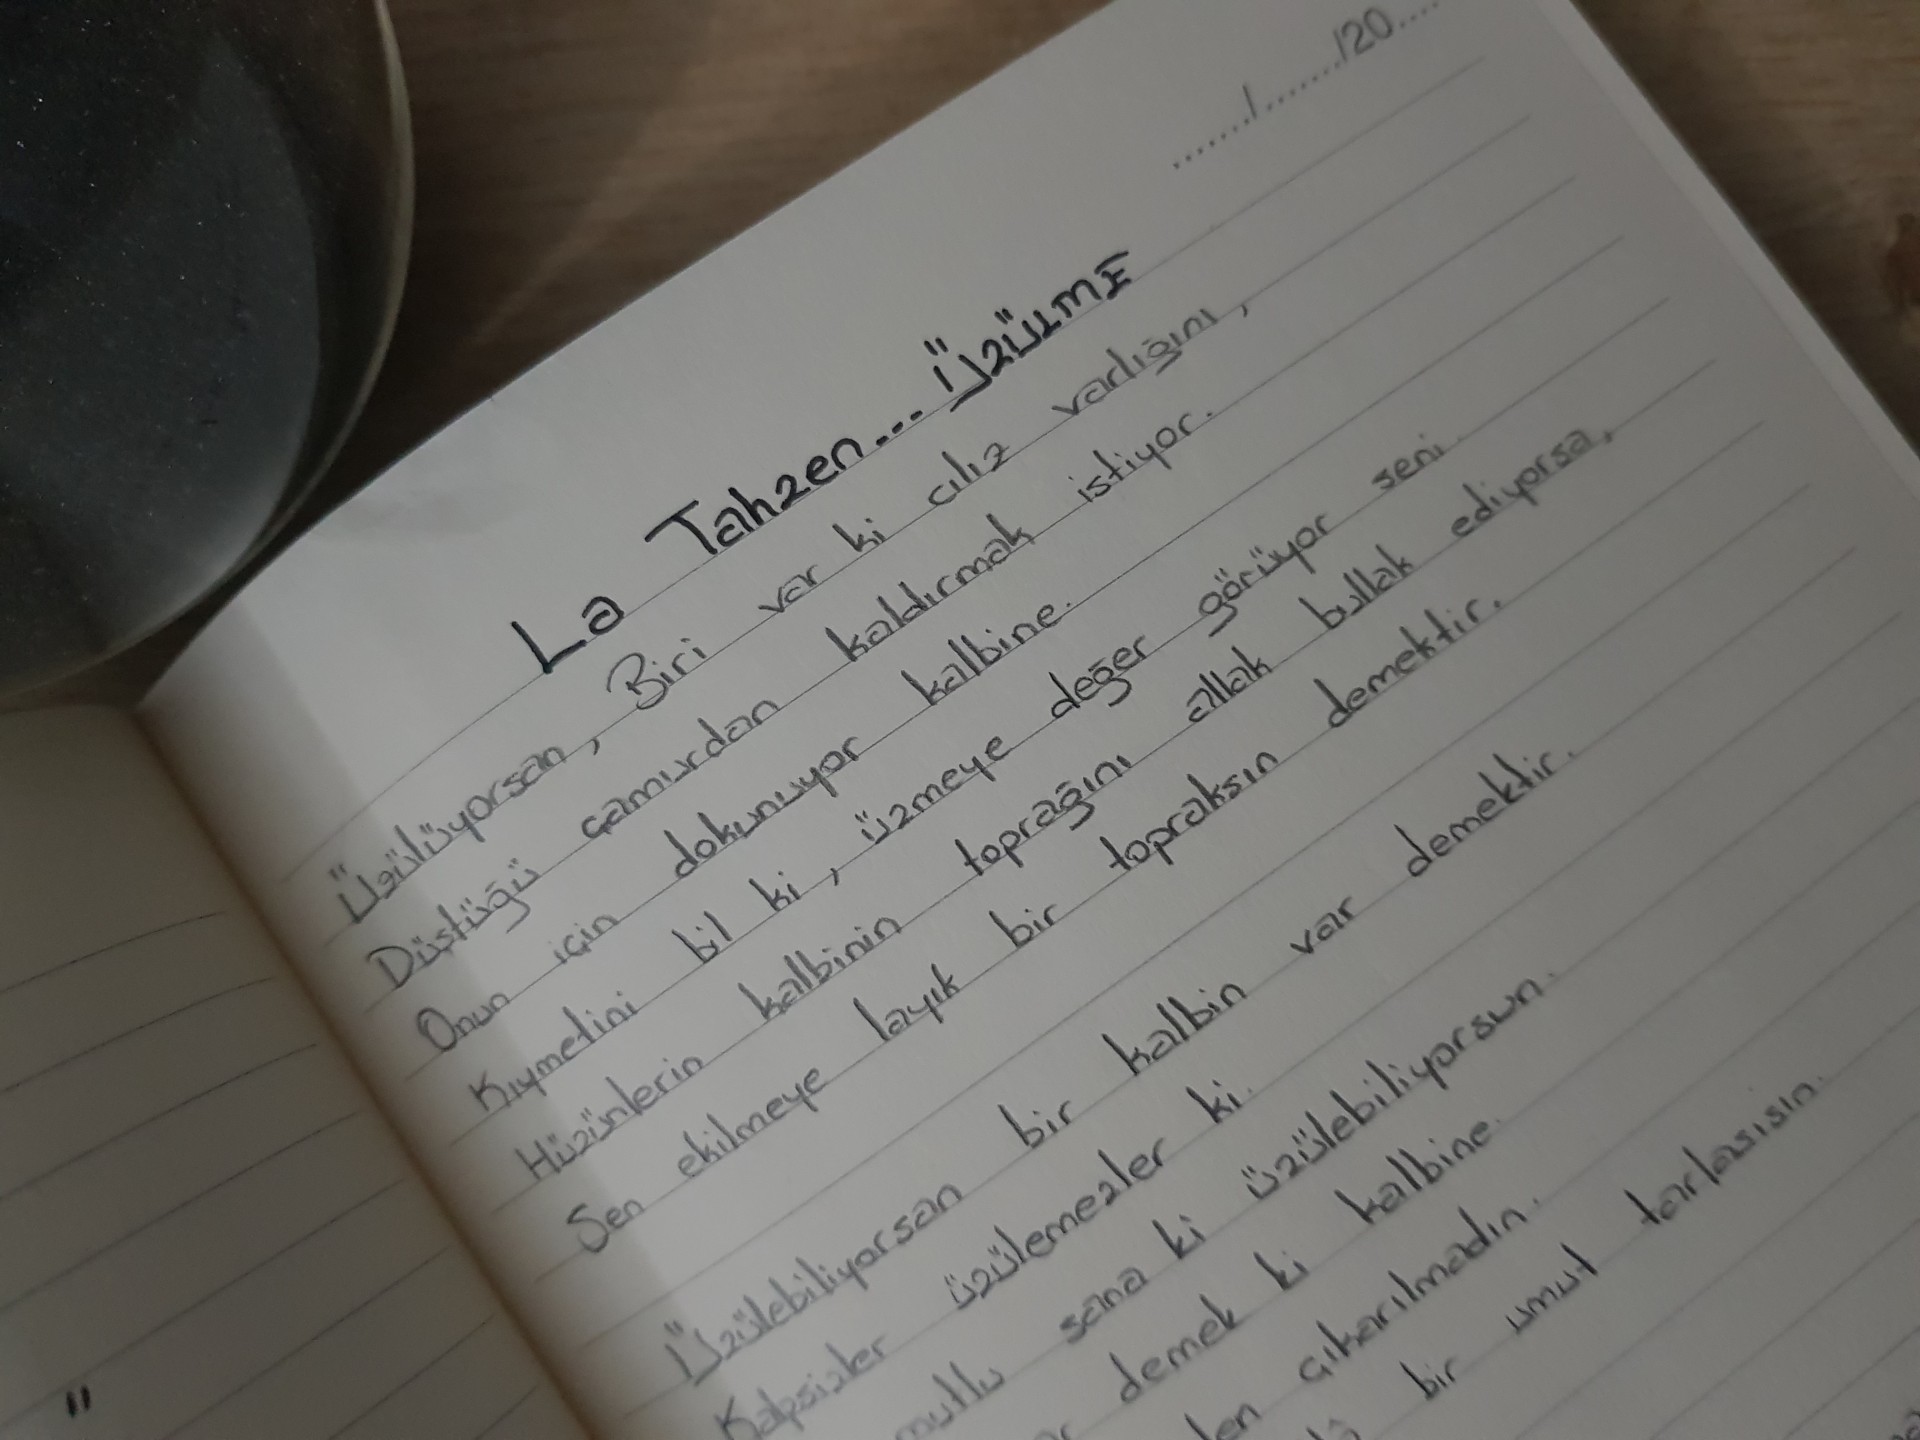 ....../......./20....
La Tahzen... ÜzülmE
Üzülüyorsan, Biri var ki cılız varlığını,
Düştüğü çamurdan kaldırmak istiyor.
Onun için dokunuyor kalbine.
Kıymetini bil ki, üzmeye değer görüyor seni.
Hüzünlerin kalbinin toprağını allak bullak ediyorsa,
Sen ekilmeye layık bir topraksın demektir.
Üzülebiliyorsan bir kalbin var demektir.
Kalpsizler üzülemezler ki.
mutlu sana ki üzülebiliyorsun.
demek ki kalbine.
çıkarılmadın.
bir umut tarlasısın.
"